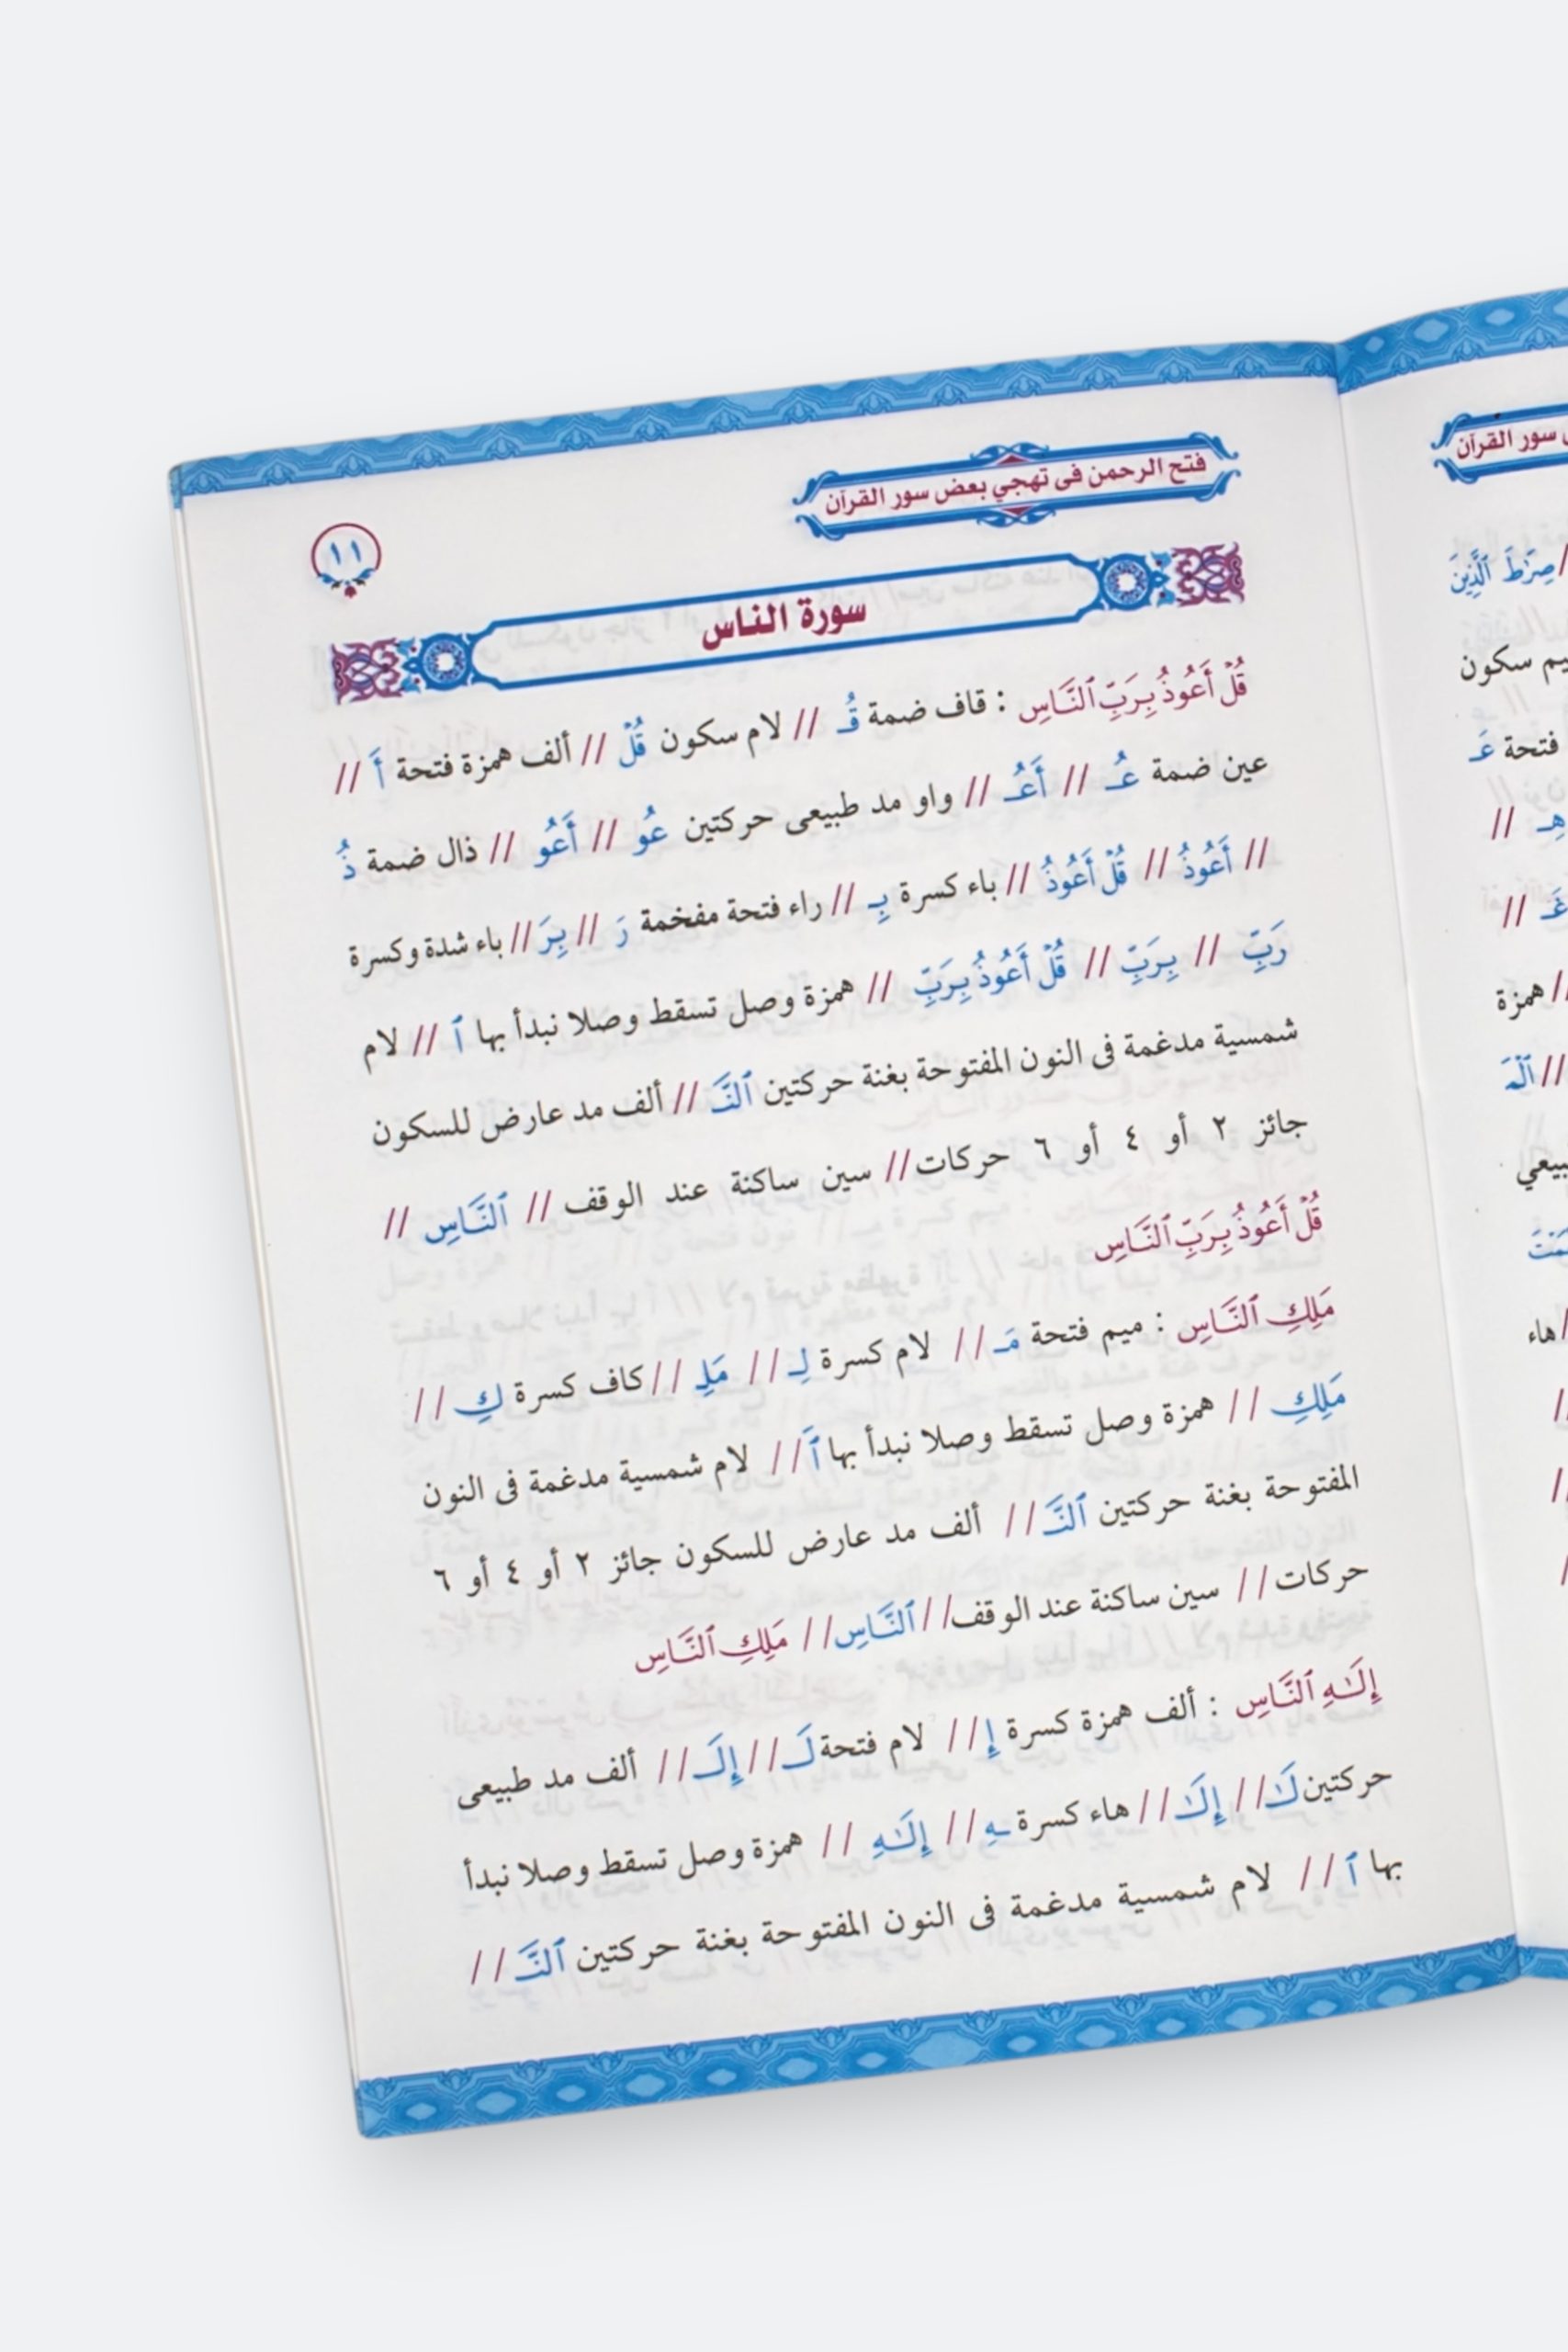 فتح الرحمن فى تهجي بعض سور القرآن
١١
سورة الناس
قُلْ أَعُوذُ بِرَبِّ ٱلنَّاسِ : قاف ضمة قُـ // لام سكون قُلْ // ألف همزة فتحة أَ //
عين ضمة عُـ // أَعُـ // واو مد طبيعى حركتين عُو // أَعُو // ذال ضمة ذُ
// أَعُوذُ // قُلْ أَعُوذُ // باء كسرة بِـ // راء فتحة مفخمة رَ // بِرَ // باء شدة وكسرة
رَبِّ // بِرَبِّ // قُلْ أَعُوذُ بِرَبِّ // همزة وصل تسقط وصلا نبدأ بها ٱ // لام
شمسية مدغمة فى النون المفتوحة بغنة حركتين ٱلنَّـ // ألف مد عارض للسكون
جائز ٢ أو ٤ أو ٦ حركات // سين ساكنة عند الوقف // ٱلنَّاسِ //
قُلْ أَعُوذُ بِرَبِّ ٱلنَّاسِ
مَلِكِ ٱلنَّاسِ : ميم فتحة مَـ // لام كسرة لِـ // مَلِـ // كاف كسرة كِ //
مَلِكِ // همزة وصل تسقط وصلا نبدأ بها ٱَ // لام شمسية مدغمة فى النون
المفتوحة بغنة حركتين ٱلنَّـ // ألف مد عارض للسكون جائز ٢ أو ٤ أو ٦
حركات // سين ساكنة عند الوقف // ٱلنَّاسِ // مَلِكِ ٱلنَّاسِ
إِلَـٰهِ ٱلنَّاسِ : ألف همزة كسرة إِ // لام فتحة لَـ // إِلَـ // ألف مد طبيعى
حركتين لَـٰ // إِلَـٰ // هاء كسرة ـهِ // إِلَـٰهِ // همزة وصل تسقط وصلا نبدأ
بها ٱ // لام شمسية مدغمة فى النون المفتوحة بغنة حركتين ٱلنَّـ //
سور القرآن
// صِرَٰطَ ٱلَّذِينَ
سكون
فتحة عَـ
هِـ //
غَـ //
// همزة
//
هاء
//
//